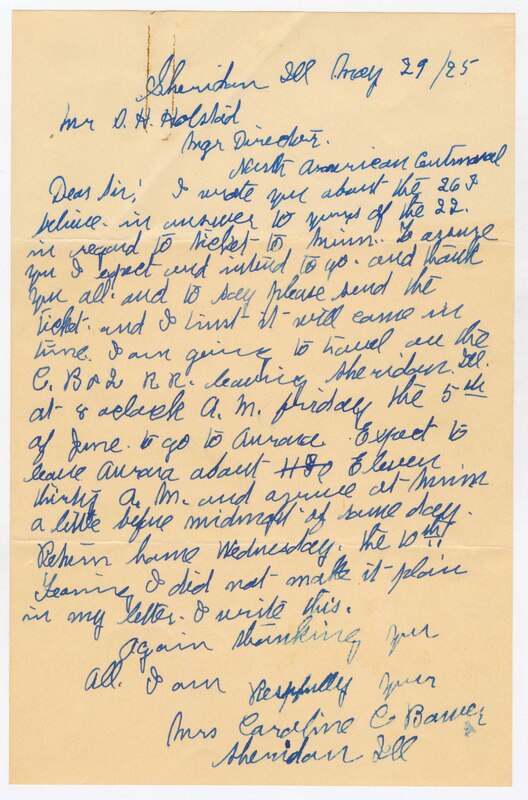 Sheridan Ill May 29/25
Mr D. H. Holstad
Mgr Director.
North American Centennial
Dear Sir; I wrote you about the 26 I
believe in answer to yours of the 22.
in regard to ticket to Minn. To assure
you I expect and intend to go. and thank
you all. and to say please send the
ticket. and I trust it will come in
time. I am going to travel on the
C. B & Q R R. leaving Sheridan. Ill.
at 8 oclock A. M. friday the 5th
of June. to go to Aurora. Expect to
leave Aurora about Eleven
thirty A. M. and arrive at Minn
a little before midnight of same day.
Return home Wednesday. the 10th.
Fearing I did not make it plain
in my letter. I write this.
Again thanking you
all. I am Respfully your
Mrs Caroline C
Sheridan Ill